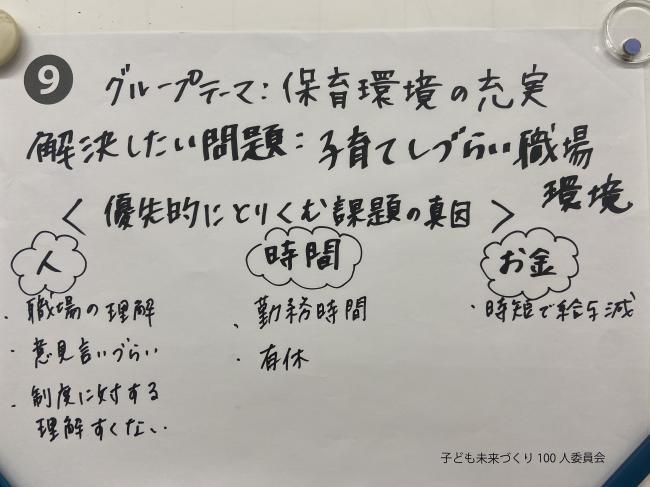 9
グループテーマ：保育環境の充実
解決したい問題：子育てしづらい職場
環境
＜優先的にとりくむ課題の真因＞
人
・職場の理解
・意見言いづらい
・制度に対する
理解すくない
時間
・勤務時間
・有休
お金
・時短で給与減
子ども未来づくり100人委員会